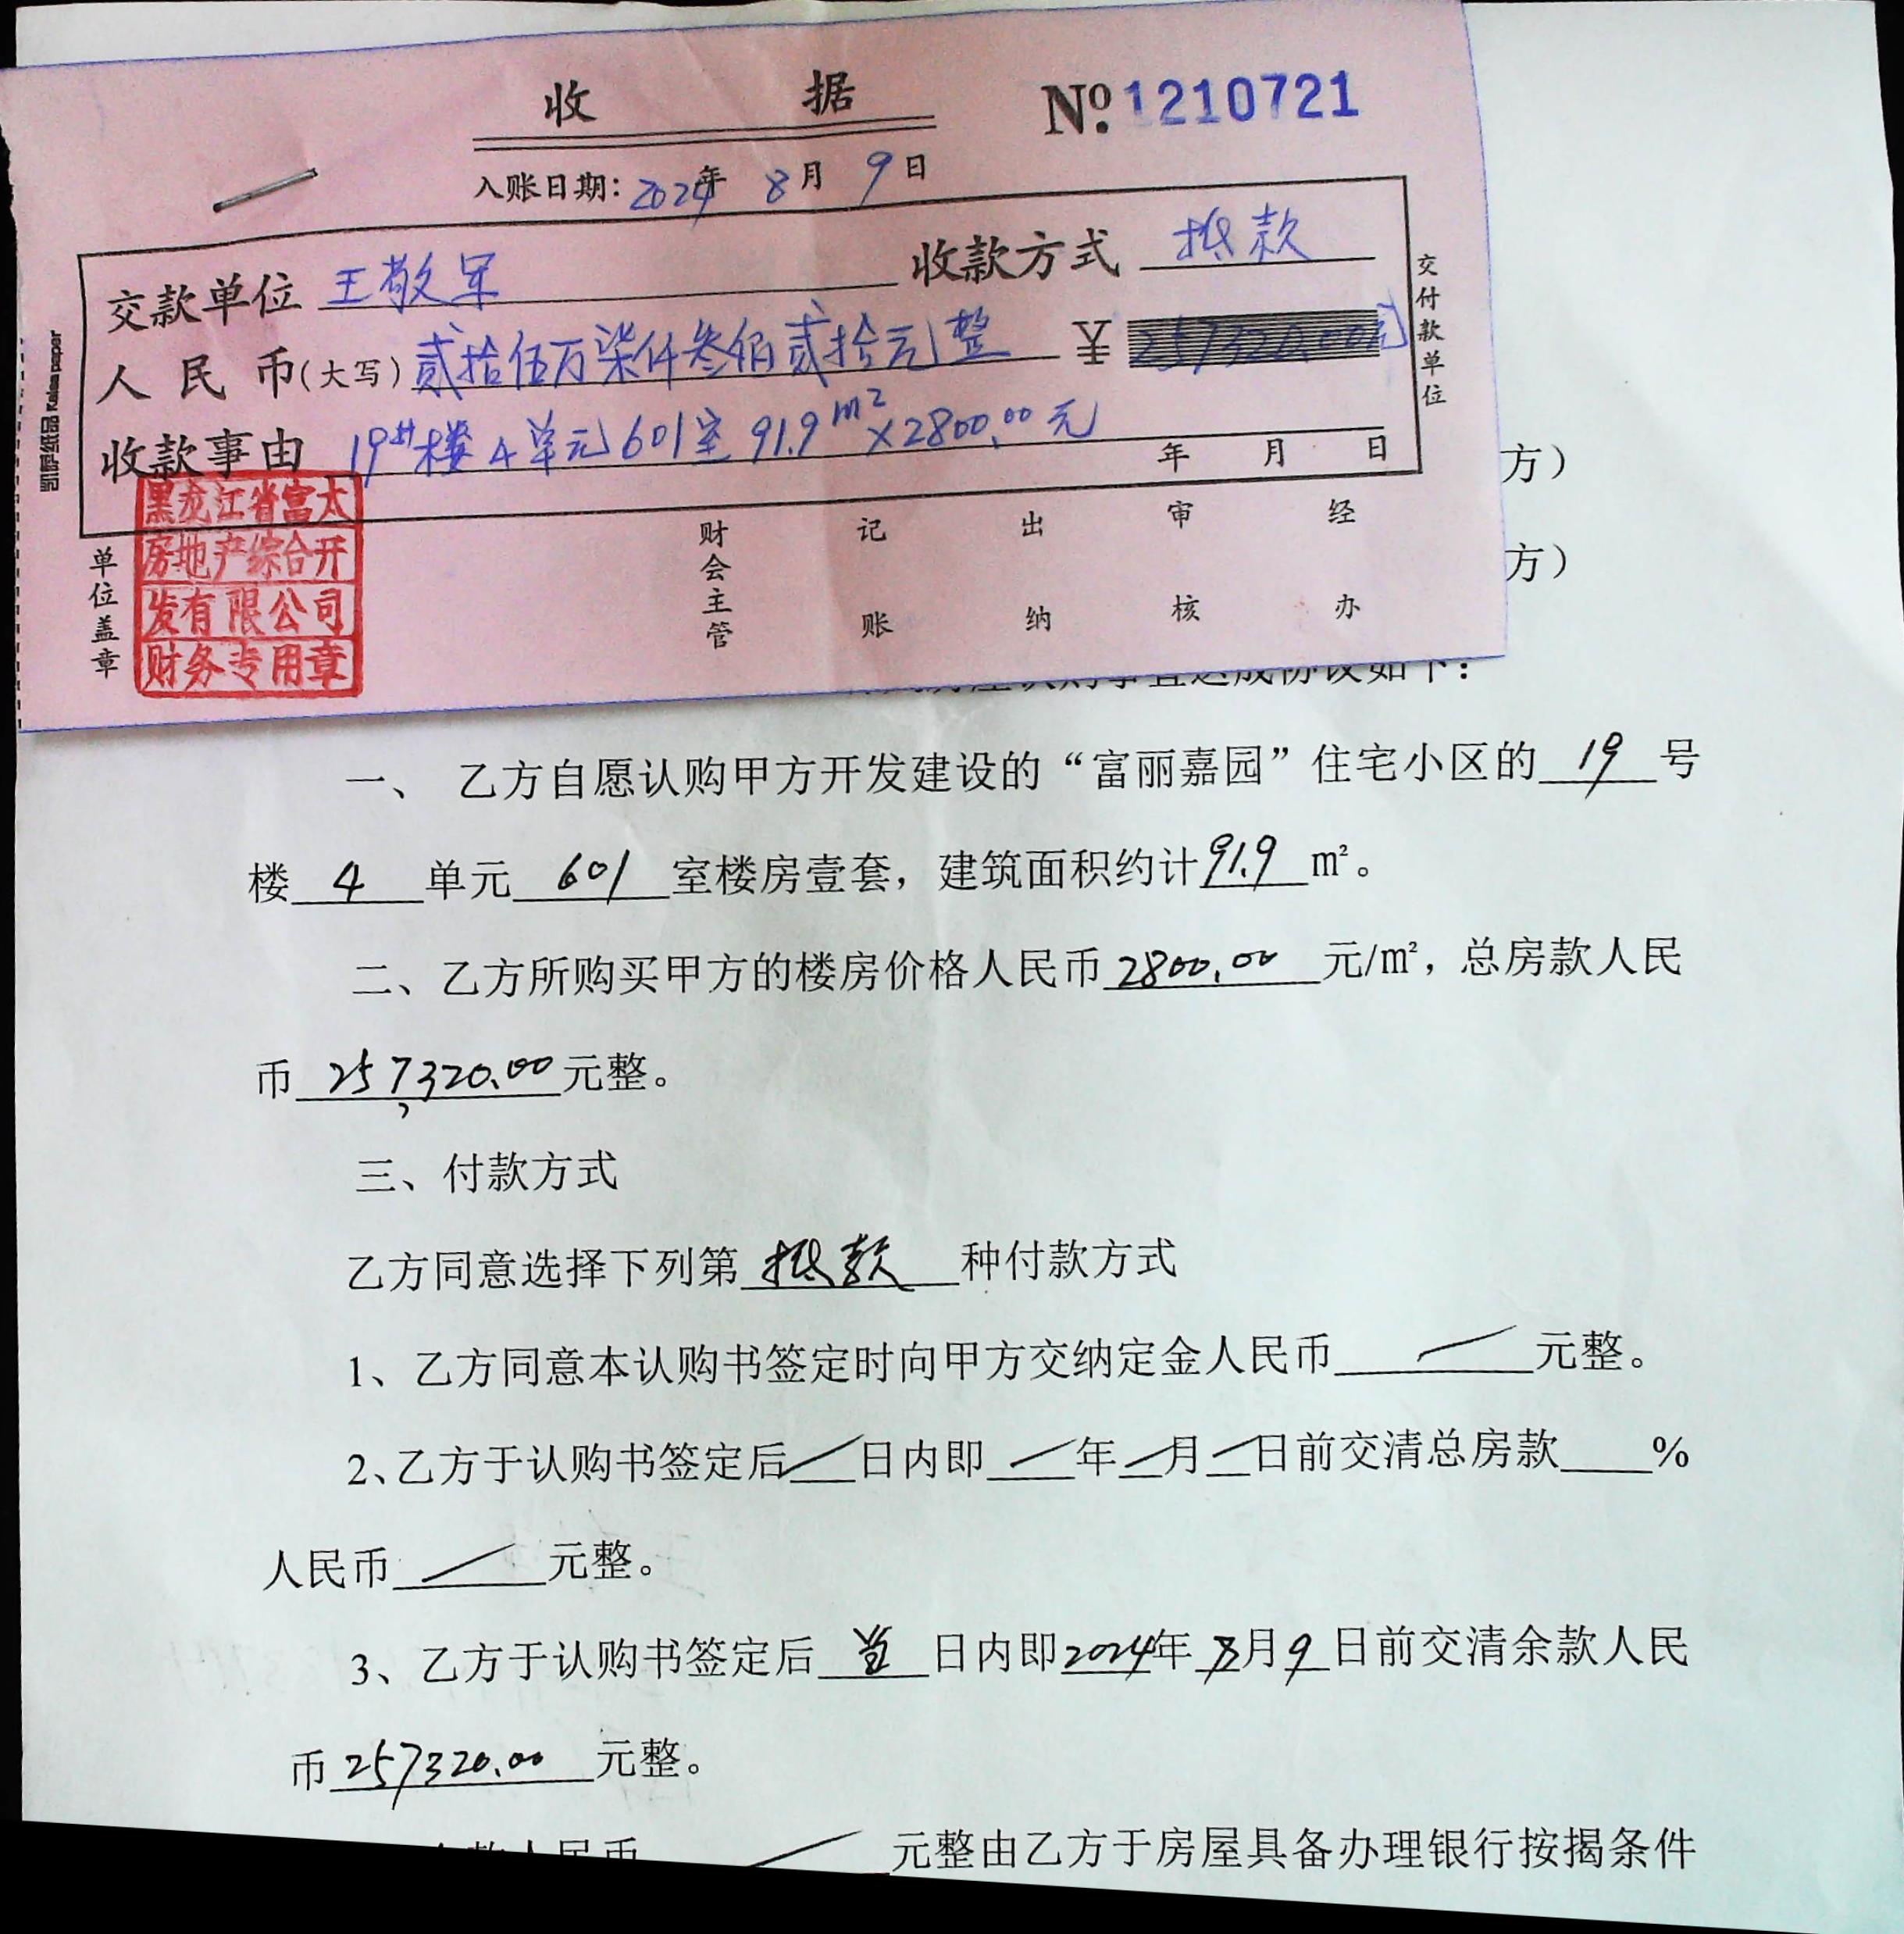 收 据 No. 1210721
入账日期：2024年 8月 9日
交款单位 王敬军 收款方式 抵款
人民币(大写) 贰拾伍万柒仟叁佰贰拾元整 ￥257320.00元
收款事由 19#楼4单元601室 91.9m²×2800.00元
年 月 日
交付款单位
凯丽纸品 Kaili paper
单位盖章
黑龙江省富太
房地产综合开
发有限公司
财务专用章
财会主管 记账 出纳 审核 经办
方）
方）
达成协议如下：
一、 乙方自愿认购甲方开发建设的“富丽嘉园”住宅小区的 19 号
楼 4 单元 601 室楼房壹套，建筑面积约计91.9 m²。
二、乙方所购买甲方的楼房价格人民币2800.00 元/m²，总房款人民
币 257,320.00元整。
三、付款方式
乙方同意选择下列第 抵款 种付款方式
1、乙方同意本认购书签定时向甲方交纳定金人民币 / 元整。
2、乙方于认购书签定后 / 日内即 / 年 / 月 / 日前交清总房款____%
人民币 / 元整。
3、乙方于认购书签定后 当 日内即2024年 8月 9 日前交清余款人民
币 257320.00 元整。
款人民币 / 元整由乙方于房屋具备办理银行按揭条件